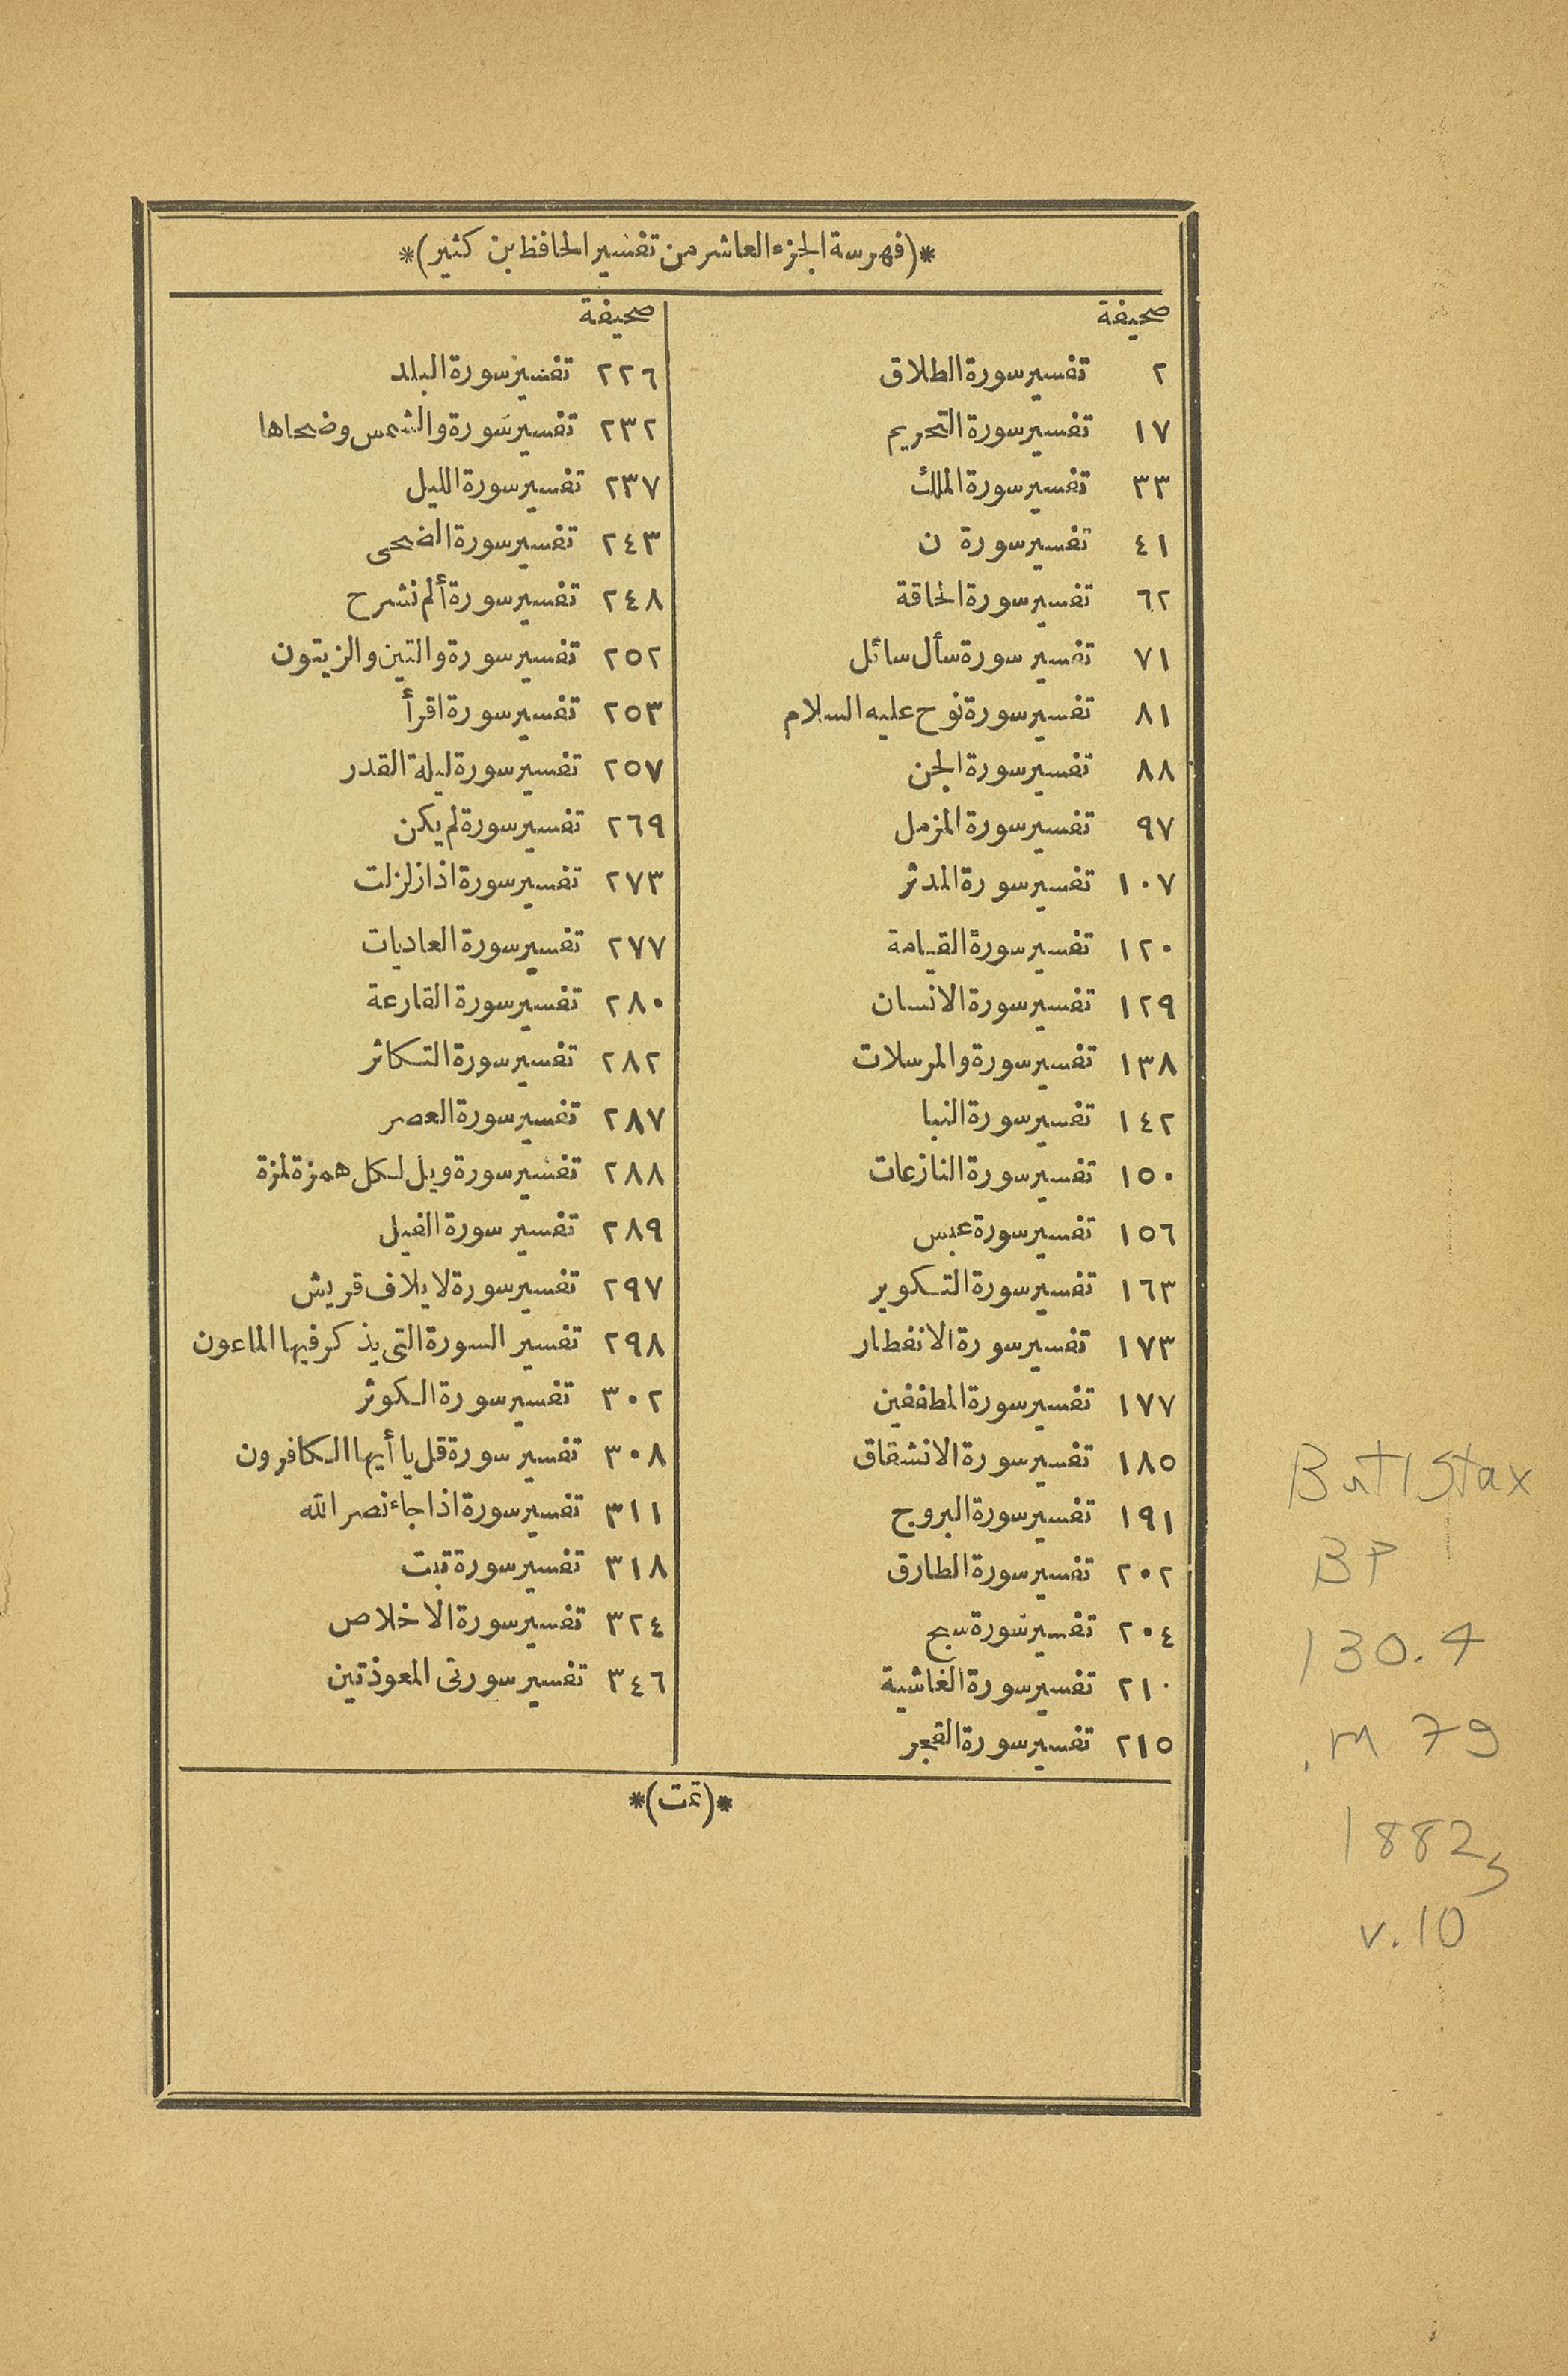 *(فهرسة الجزء العاشر من تفسير الحافظ بن كثير)*
صحيفة
٢ تفسير سورة الطلاق
١٧ تفسير سورة التحريم
٣٣ تفسير سورة الملك
٤١ تفسير سورة ن
٦٢ تفسير سورة الحاقة
٧١ تفسير سورة سأل سائل
٨١ تفسير سورة نوح عليه السلام
٨٨ تفسير سورة الجن
٩٧ تفسير سورة المزمل
١٠٧ تفسير سورة المدثر
١٢٠ تفسير سورة القيامة
١٢٩ تفسير سورة الانسان
١٣٨ تفسير سورة والمرسلات
١٤٢ تفسير سورة النبا
١٥٠ تفسير سورة النازعات
١٥٦ تفسير سورة عبس
١٦٣ تفسير سورة التكوير
١٧٣ تفسير سورة الانفطار
١٧٧ تفسير سورة المطففين
١٨٥ تفسير سورة الانشقاق
١٩١ تفسير سورة البروج
٢٠٢ تفسير سورة الطارق
٢٠٤ تفسير سورة سبح
٢١٠ تفسير سورة الغاشية
٢١٥ تفسير سورة الفجر
صحيفة
٢٢٦ تفسير سورة البلد
٢٣٢ تفسير سورة والشمس وضحاها
٢٣٧ تفسير سورة الليل
٢٤٣ تفسير سورة الضحى
٢٤٨ تفسير سورة ألم نشرح
٢٥٢ تفسير سورة والتين والزيتون
٢٥٣ تفسير سورة اقرأ
٢٥٧ تفسير سورة ليلة القدر
٢٦٩ تفسير سورة لم يكن
٢٧٣ تفسير سورة اذا زلزلت
٢٧٧ تفسير سورة العاديات
٢٨٠ تفسير سورة القارعة
٢٨٢ تفسير سورة التكاثر
٢٨٧ تفسير سورة العصر
٢٨٨ تفسير سورة ويل لكل همزة لمزة
٢٨٩ تفسير سورة الفيل
٢٩٧ تفسير سورة لايلاف قريش
٢٩٨ تفسير السورة التى يذكر فيها الماعون
٣٠٢ تفسير سورة الكوثر
٣٠٨ تفسير سورة قل يا أيها الكافرون
٣١١ تفسير سورة اذا جاء نصر الله
٣١٨ تفسير سورة تبت
٣٢٤ تفسير سورة الاخلاص
٣٤٦ تفسير سورتى المعوذتين
*(تمت)*
Butl Stax
BP
130.4
.M 79
1882
v.10